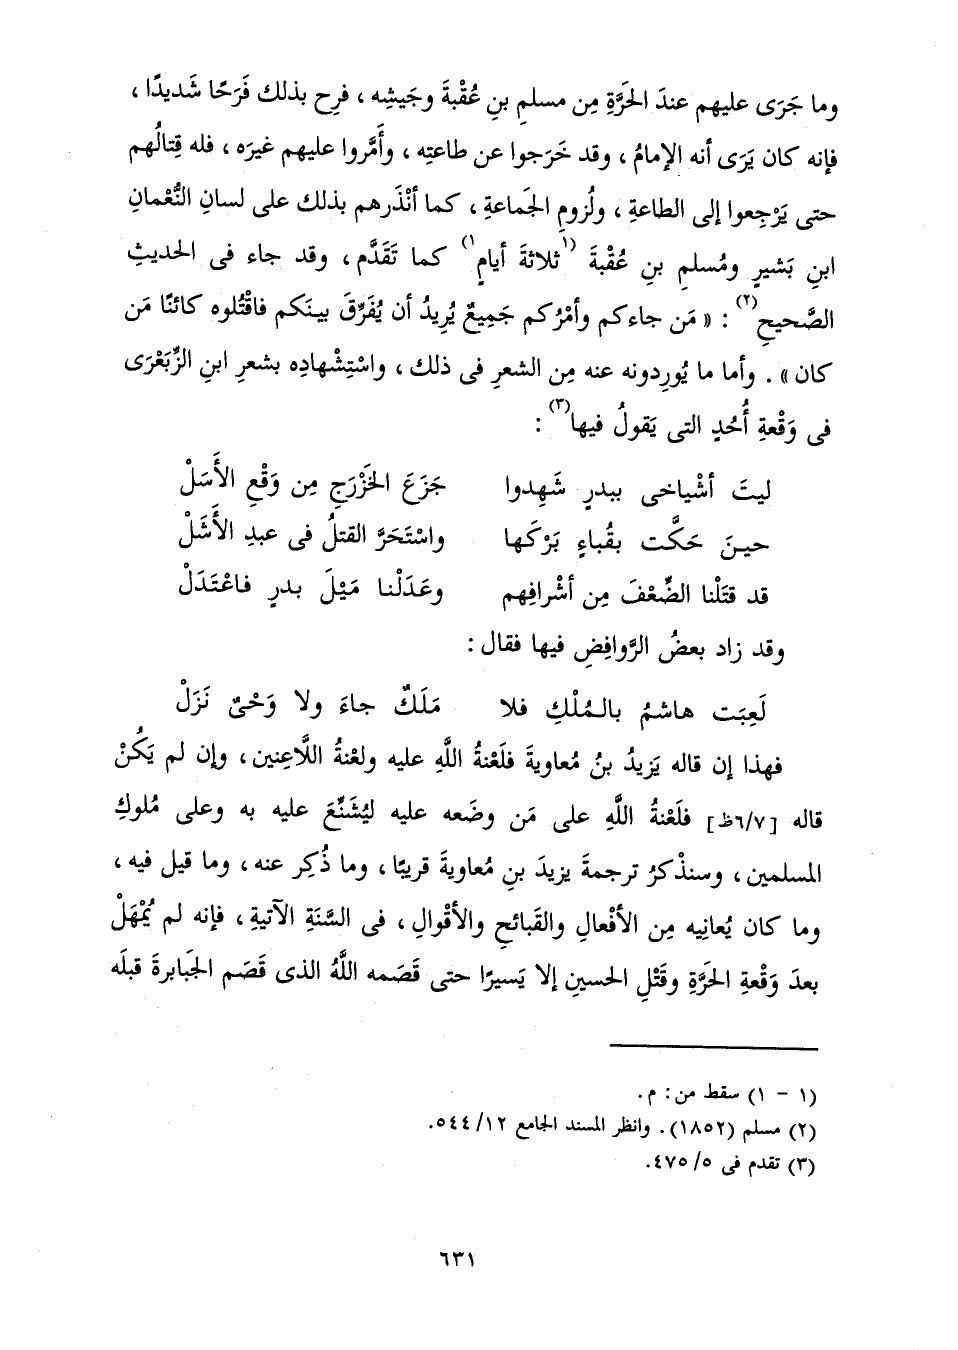 وما جَرَى عليهم عندَ الحَرَّةِ مِن مسلمِ بنِ عُقْبةَ وجَيشِه ، فرِح بذلك فَرَحًا شَديدًا ،
فإنه كان يَرَى أنه الإمامُ ، وقد خَرَجوا عن طاعتِه ، وأَمَّروا عليهم غيرَه ، فله قِتالُهم
حتى يَرْجِعوا إلى الطاعةِ ، ولُزومِ الجَماعةِ ، كما أنْذَرهم بذلك على لسانِ النُّعْمانِ
ابنِ بَشيرٍ ومُسلمِ بنِ عُقْبةَ (١ثلاثةَ أيامٍ١) كما تَقَدَّم ، وقد جاء فى الحديثِ
الصَّحيحِ(٢) : « مَن جاءكم وأمْرُكم جَميعٌ يُرِيدُ أن يُفَرِّقَ بينَكم فاقْتُلوه كائنًا مَن
كان » . وأما ما يُورِدونه عنه مِن الشعرِ فى ذلك ، واسْتِشْهادِه بشعرِ ابنِ الزِّبَعْرَى
فى وَقْعةِ أُحُدٍ التى يَقولُ فيها(٣) :
ليتَ أشْياخى ببدرٍ شَهِدوا جَزَعَ الخَزْرَجِ مِن وَقْعِ الأَسَلْ
حينَ حَكَّت بقُباءٍ بَرْكَها واسْتَحَرَّ القتلُ فى عبدِ الأَشَلْ
قد قتَلْنا الضِّعْفَ مِن أشْرافِهم وعَدَلْنا مَيْلَ بدرٍ فاعْتَدَلْ
وقد زاد بعضُ الرَّوافِضِ فيها فقال :
لَعِبَت هاشمُ بالمُلْكِ فلا مَلَكٌ جاءَ ولا وَحْىٌ نَزَلْ
فهذا إن قاله يَزيدُ بنُ مُعاويةَ فلَعْنةُ اللَّهِ عليه ولعْنةُ اللاَّعِنين ، وإن لم يَكُنْ
قاله [٦/٧ظ] فلَعْنةُ اللَّهِ على مَن وضَعه عليه ليُشَنِّعَ عليه به وعلى مُلوكِ
المسلمين ، وسنذْكرُ ترجمةَ يزيدَ بنِ مُعاويةَ قريبًا ، وما ذُكِر عنه ، وما قيل فيه ،
وما كان يُعانِيه مِن الأفْعالِ والقَبائحِ والأقْوالِ ، فى السَّنَةِ الآتيةِ ، فإنه لم يُمْهَلْ
بعدَ وَقْعةِ الحَرَّةِ وقَتْلِ الحسينِ إلا يَسيرًا حتى قَصَمه اللَّهُ الذى قَصَم الجَبابرةَ قبلَه
(١ - ١) سقط من : م.
(٢) مسلم (١٨٥٢). وانظر المسند الجامع ١٢/ ٥٤٤.
(٣) تقدم فى ٥/ ٤٧٥.
٦٣١